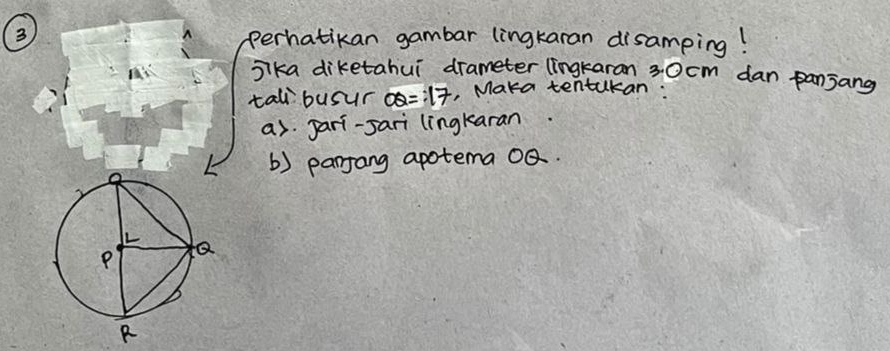 3
perhatikan gambar lingkaran disamping!
Jika diketahui diameter lingkaran 30cm dan panjang
tali busur OQ=17, Maka tentukan:
a). jari-jari lingkaran.
b) panjang apotema OQ.
O
P
Q
R